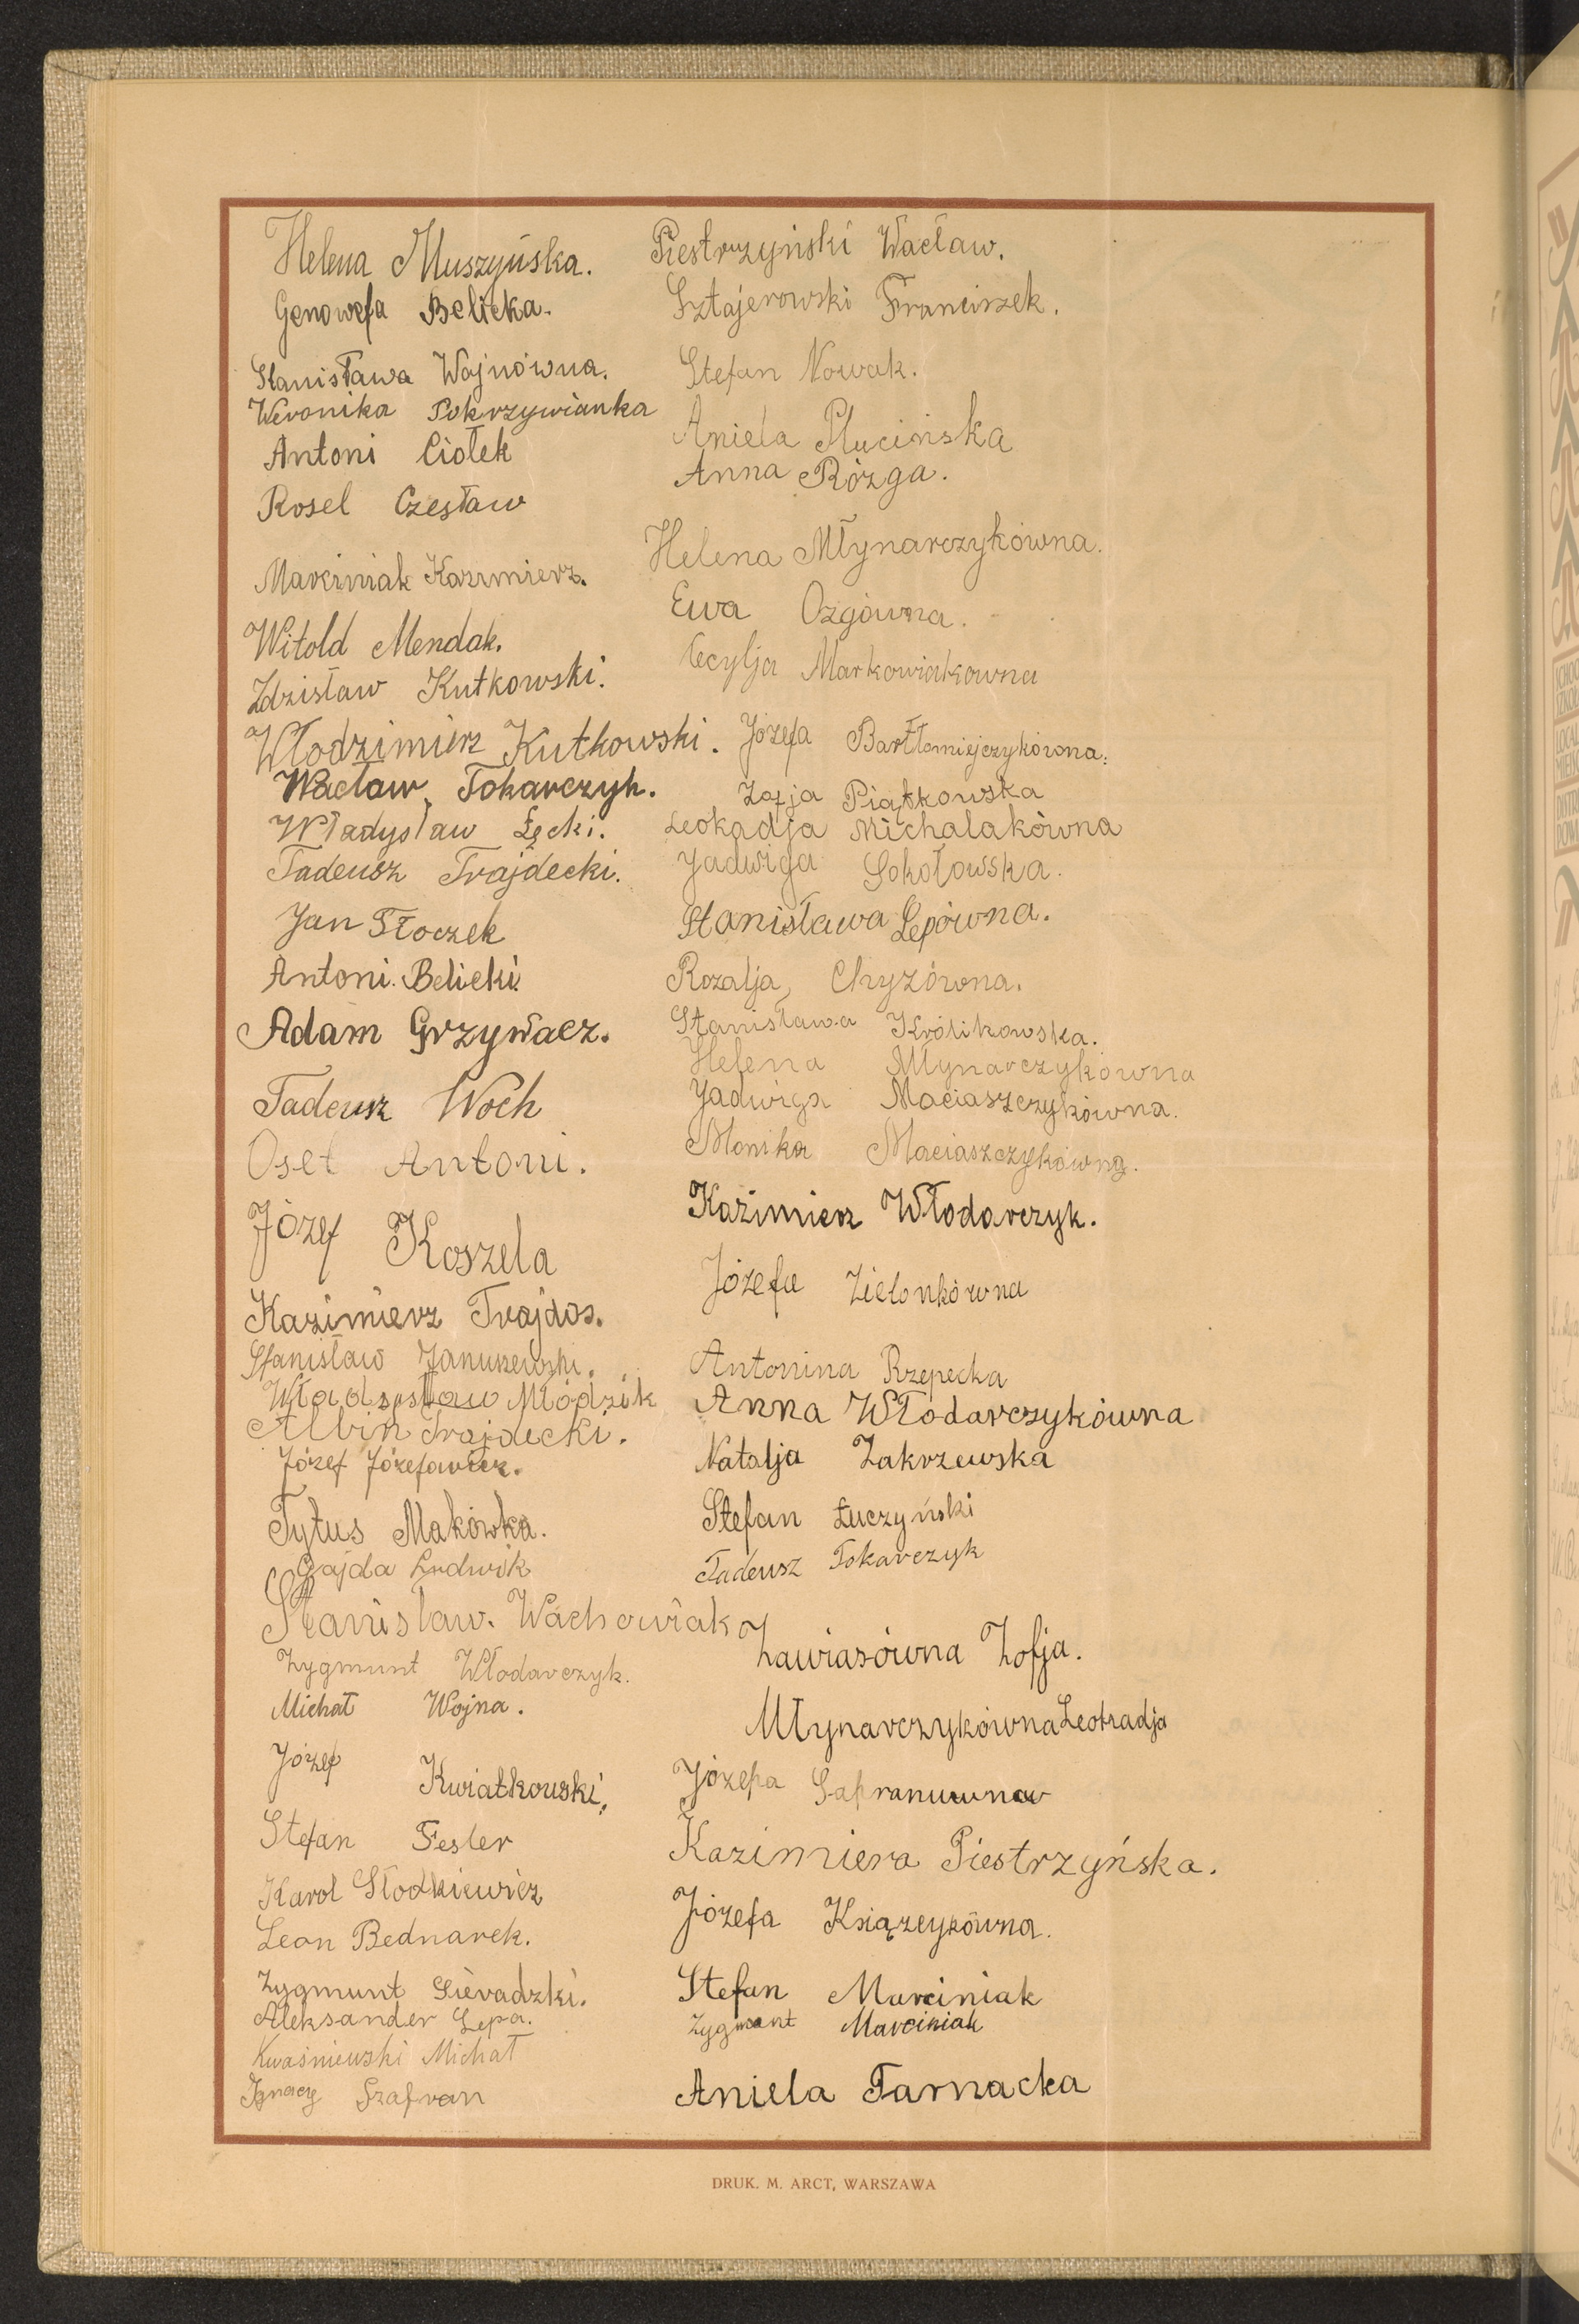 Helena Muszyńska.
Genowefa Belicka.
Stanisława Wojnówna.
Weronika Pokrzywianka
Antoni Ciołek
Rosel Czesław
Marciniak Kazimierz.
Witold Mendak.
Zdzisław Kutkowski.
Włodzimierz Kutkowski.
Wacław Tokarczyk.
Władysław Łęcki.
Tadeusz Trajdecki.
Jan Stoczek
Antoni. Belicki
Adam Grzywacz.
Tadeusz Woch
Oset Antoni.
Józef Koszela
Kazimierz Trajdos.
Stanisław Januszewski.
Władysław Młodzik
Albin Trajdecki.
Józef Józefowicz.
Tytus Makówka.
Gajda Ludwik
Stanisław. Wachowiak
Zygmunt Włodarczyk.
Michał Wojna.
Józef Kwiatkowski.
Stefan Fesler
Karol Słodkiewicz
Leon Bednarek.
Zygmunt Sieradzki.
Aleksander Lepa.
Kwaśniewski Michał
Ignacy Szafran
Piestrzyński Wacław.
Sztajerowski Franciszek.
Stefan Nowak.
Aniela Plucińska
Anna Rózga.
Helena Młynarczykówna.
Ewa Ozgówna.
Cecylja Markowiakowna
Józefa Bartłomiejczykówna.
Zofja Piątkowska
Leokadja Michalakówna
Jadwiga Sokołowska.
Stanisława Lepówna.
Rozalja, Chyzówna.
Stanisława Królikowska.
Helena Młynarczykówna
Jadwiga Maciaszczykówna.
Monika Maciaszczykówna.
Kazimierz Włodarczyk.
Józefa Zielonkówna
Antonina Rzepecka
Anna Włodarczykówna
Natalja Zakrzewska
Stefan Łuczyński
Tadeusz Tokarczyk
Zawiasówna Zofja.
Młynarczykówna Leokadja
Józefa
Kazimiera Piestrzyńska.
Józefa Książczykówna.
Stefan Marciniak
Zygmunt Marciniak
Aniela Tarnacka
DRUK. M. ARCT, WARSZAWA